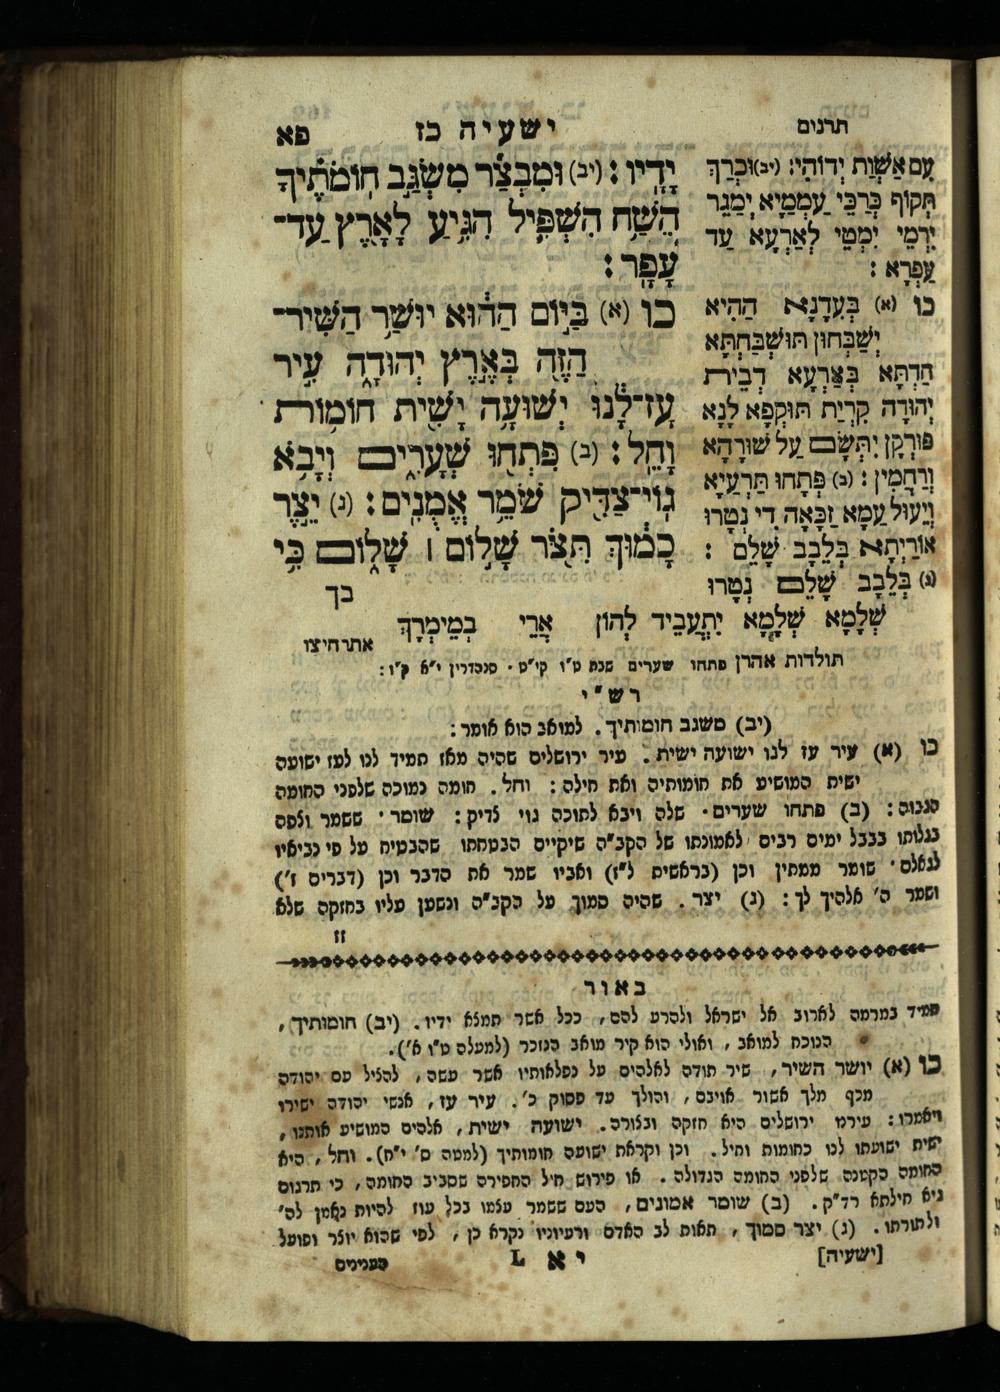 תרגום
ישעיה כז
פא
עִם אַשְׁוַת יְדוֹהִי: (יב) וּכְרַךְ
תְּקוֹף כְּרַכֵּי עַמְמַיָא יְמַגֵר
יִרְמֵי יִמְטֵי לְאַרְעָא עַד
עַפְרָא:
כו (א) בְּעִדָנָא הַהִיא
יְשַׁבְּחוּן תּוּשְׁבַּחְתָּא
חַדְתָּא בְּאַרְעָא דְבֵית
יְהוּדָה קִרְיַת תּוּקְפָא לָנָא
פּוּרְקָן יִתְּשָׂם עַל שׁוּרָהָא
וְרַחֲמִין: (ב) פְּתָחוּ תַּרְעַיָא
וְיֵעוּל עַמָא זַכָּאָה דִי נְטָרוּ
אוֹרַיְתָא בְּלֵבָב שָׁלֵם:
(ג) בְּלֵבָב שָׁלֵם נְטָרוּ
שְׁלָמָא שְׁלָמָא יִתְעֲבֵיד לְהוֹן אֲרֵי בְמֵימְרָךְ
אתרחיצו
יָדָיו: (יב) וּמִבְצַר מִשְׂגַּב חוֹמֹתֶיךָ
הֵשַׁח הִשְׁפִּיל הִגִּיעַ לָאָרֶץ עַד־
עָפָר:
כו (א) בַּיּוֹם הַהוּא יוּשַׁר הַשִּׁיר־
הַזֶּה בְּאֶרֶץ יְהוּדָה עִיר
עָז־לָנוּ יְשׁוּעָה יָשִׁית חוֹמוֹת
וָחֵל: (ב) פִּתְחוּ שְׁעָרִים וְיָבֹא
גוֹי־צַדִּיק שֹׁמֵר אֱמֻנִים: (ג) יֵצֶר
סָמוּךְ תִּצֹּר שָׁלוֹם ׀ שָׁלוֹם כִּי
בך
תולדות אהרן פתחו שערים שבת ט״ו קי״ט · סנהדרין י״א ק״ו:
רש״י
(יב) משגב חומותיך. למואב הוא אומר:
כו (א) עיר עז לנו ישועה ישית. עיר ירושלים שהיה מאז תמיד לנו לעז ישועה
ישית המושיע את חומותיה ואת חילה: וחל. חומה נמוכה שלפני החומה
הגבוה: (ב) פתחו שערים· שלה ויבא לתוכה גוי צדיק: שומר· ששמר וצפה
בגלותו בבבל ימים רבים לאמונתו של הקב״ה שיקיים הבטחתו שהבטיח על פי נביאיו
לגאלם· שומר ממתין וכן (בראשית ל״ז) ואביו שמר את הדבר וכן (דברים ז׳)
ושמר ה׳ אלהיך לך: (ג) יצר. שהיה סמוך על הקב״ה ונשען עליו בחזקה שלא
זז
באור
תמיד במרמה לארוב אל ישראל ולהרע להם, ככל אשר תמצא ידיו. (יב) חומותיך,
הנוכח למואב, ואולי הוא קיר מואב הנזכר (למעלה ט״ו א׳).
כו (א) יושר השיר, שיר תודה לאלהים על נפלאותיו אשר עשה, להציל עם יהודה
מכף מלך אשור אויבם, והולך עד פסוק כ׳. עיר עז, אנשי יהודה ישירו
ויאמרו: עירנו ירושלים היא חזקה ובצורה. ישועה ישית, אלהים המושיע אותנו,
ישית ישועתו לנו כחומות וחיל. וכן וקראת ישועה חומותיך (למטה ס׳ י״ח). וחל, היא
החומה הקטנה שלפני החומה הגדולה. או פירוש חיל החפירה שסביב החומה, כי תרגום
גיא חילתא רד״ק. (ב) שומר אמונים, העם ששמר עצמו בכל עוז להיות נאמן לה׳
ולתורתו. (ג) יצר סמוך, תאות לב האדם ורעיוניו נקרא כן, לפי שהוא יוצר ופועל
[ישעיה]
יא L
הענינים